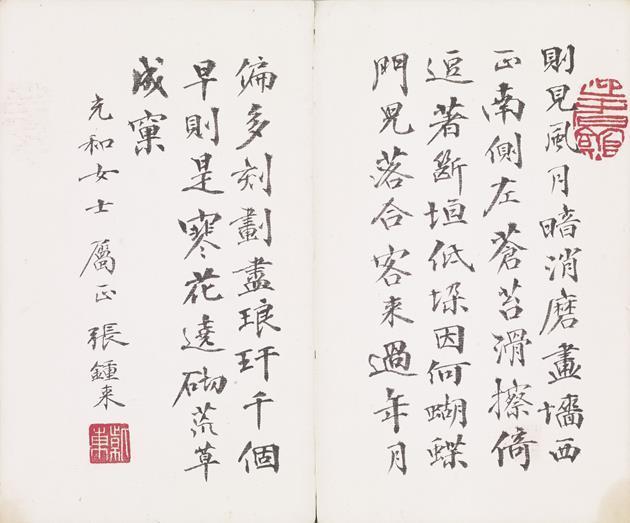 則見風月暗消磨畫墻西
正南側左蒼苔滑擦倚
逗著斷垣低垛因何蝴蝶
門兒落合客来過年月
偏多刻劃盡琅玕千個
早則是寒花遶砌荒草
成窠
充和女士 屬正 張鍾来